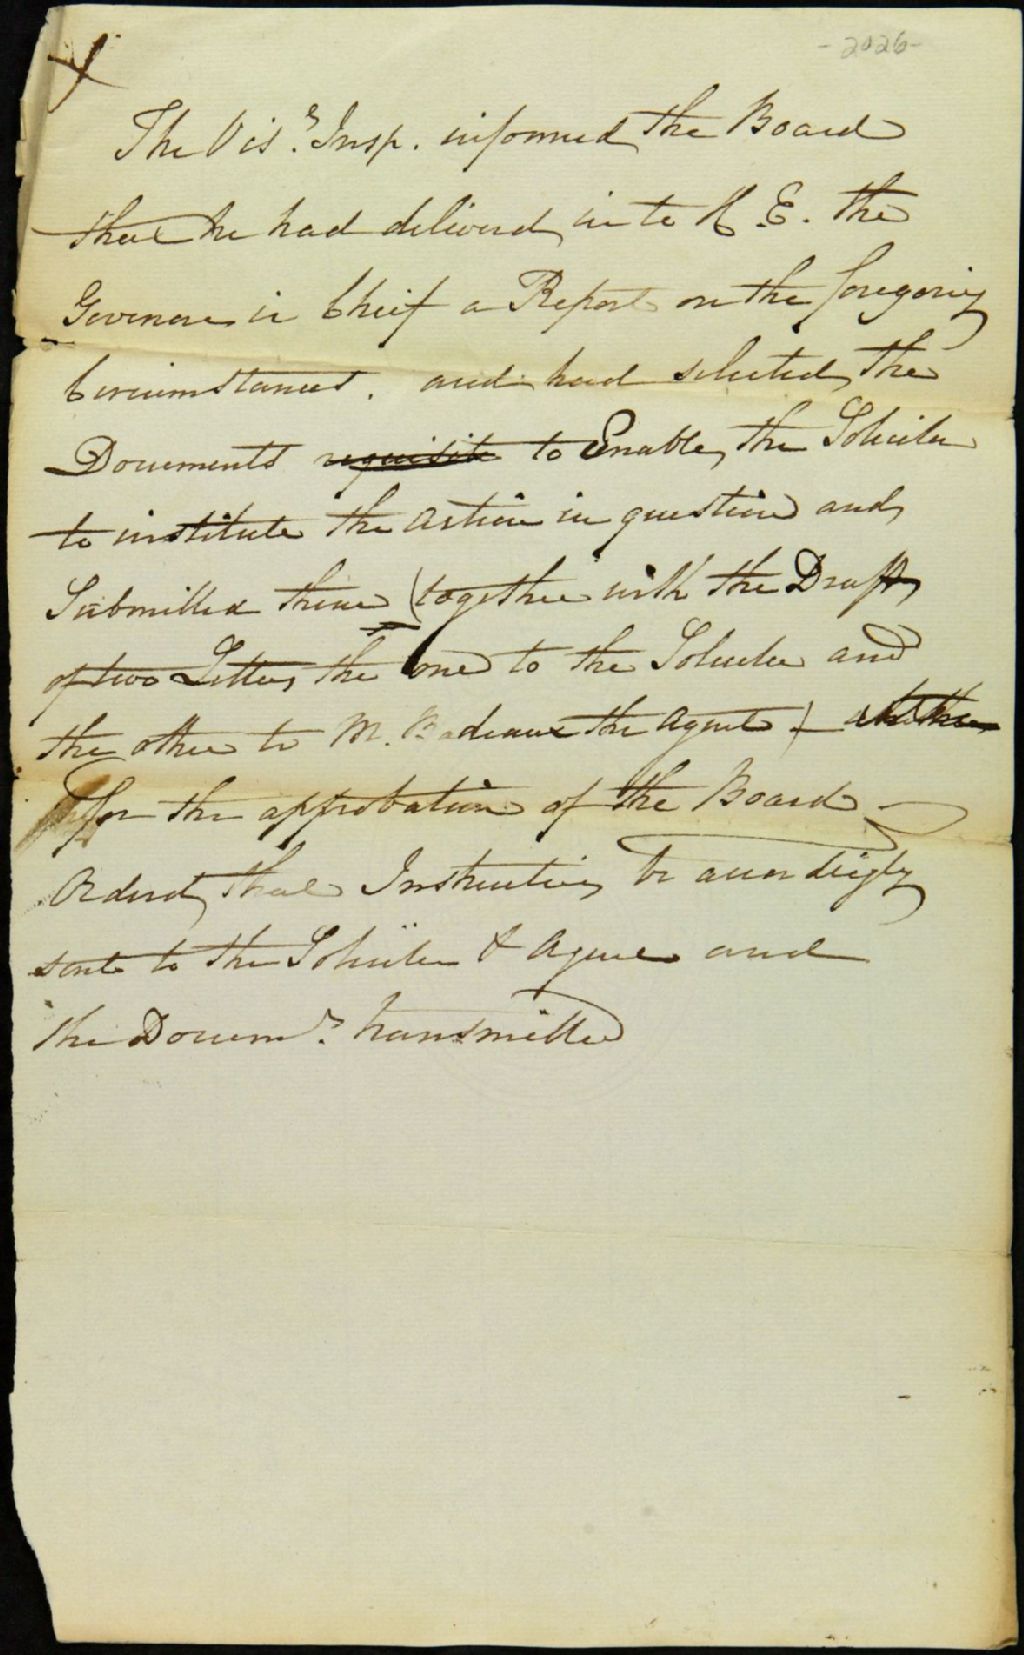 - 2026 -
The Vis.g Insp. informed the Board
that he had delivered in to H. E. the
Governor in Chief a Report on the foregoing
Circumstances. and had selected the
Documents requisite to Enable the Solicitor
to institute the Action in question and
Submitted them (together with the Draft
of two Letters the one to the Solicitor and
the other to M. Badeaux the Agent)
for the approbation of the Board
Ordered that Instructions be accordingly
sent to the Solicitor & Agent and
the Docum.ts transmitted